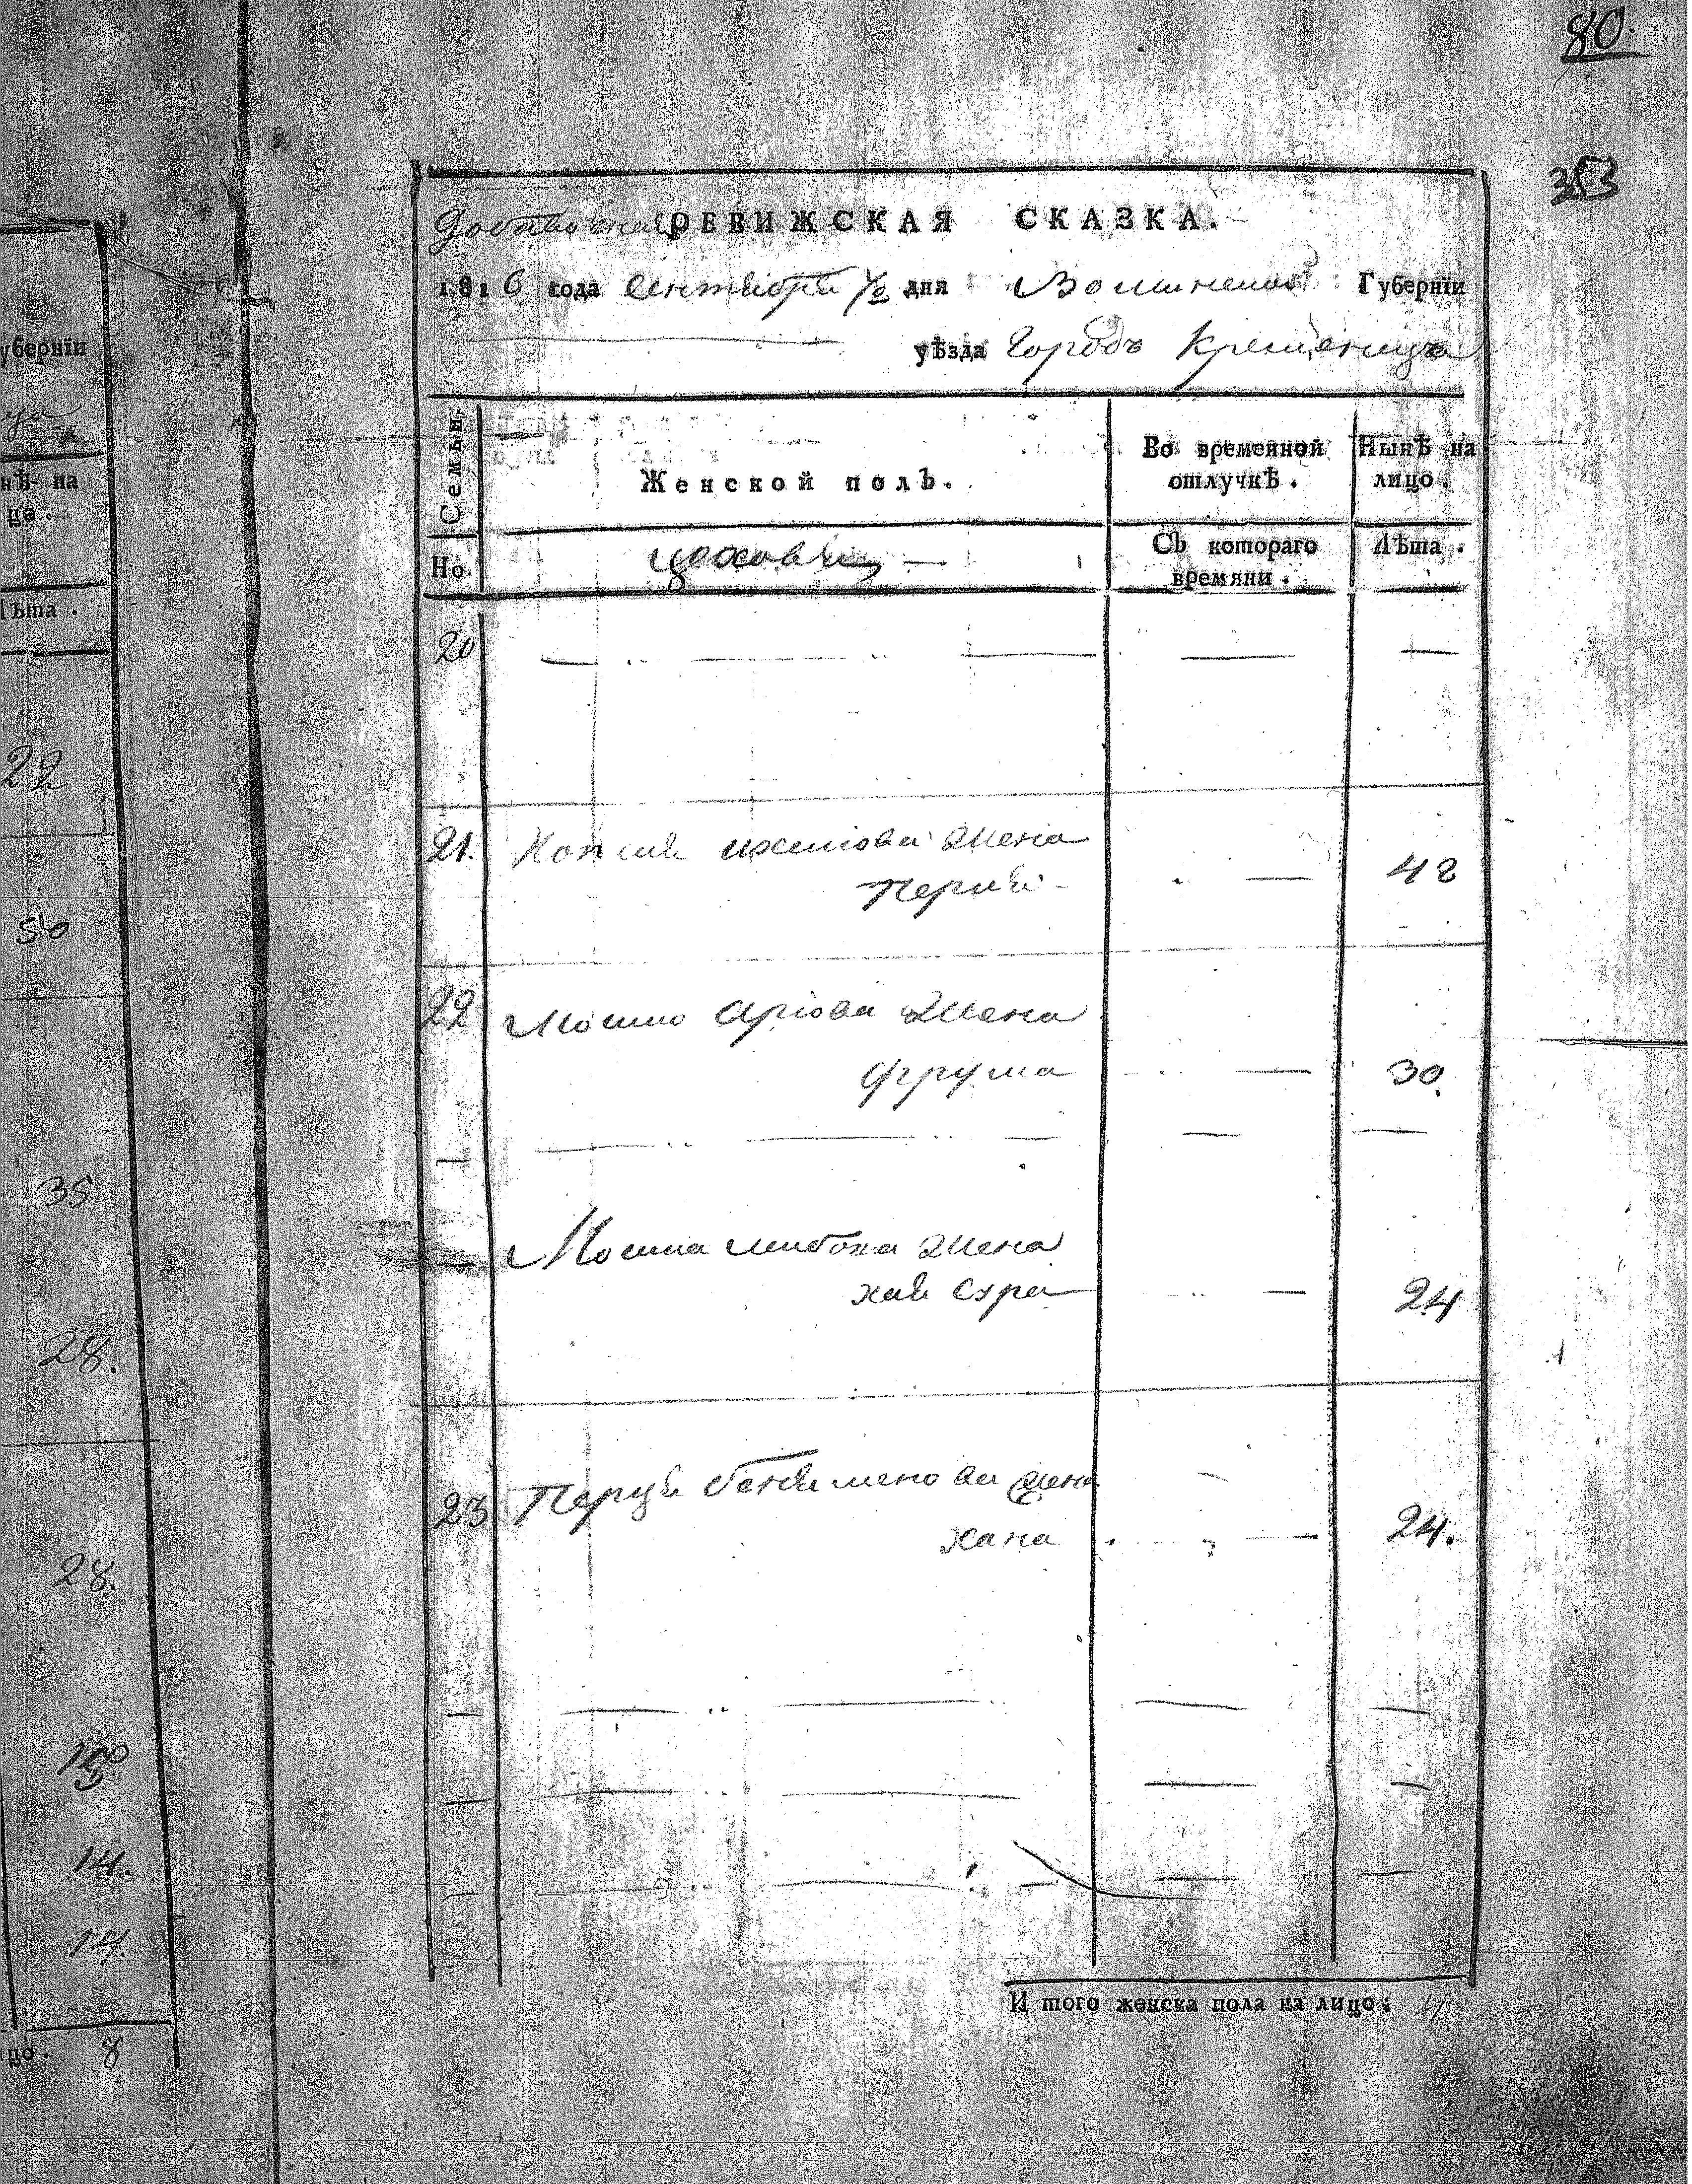 80.
353
Добавочная РЕВИЖСКАЯ СКАЗКА.
1816 года Сентября дня Волынской Губернїи
уѣзда Городъ Кременецъ
Семьи.
Женской полъ.
Во временной отлучкѣ.
Нынѣ на лицо.
Но.
Съ котораго времяни.
Лѣта.
20
21. жена
42
22 Мошко Арїова жена
Фрума 30.
Мошка Лейбова жена
хая Сура 24
23 Перца Бенеменова жена
Хана 24.
И того женска пола на лицо: 4
убернїи
нѣ на
цо.
Лѣта.
22
50
35
28.
28.
14.
14.
цо. 8